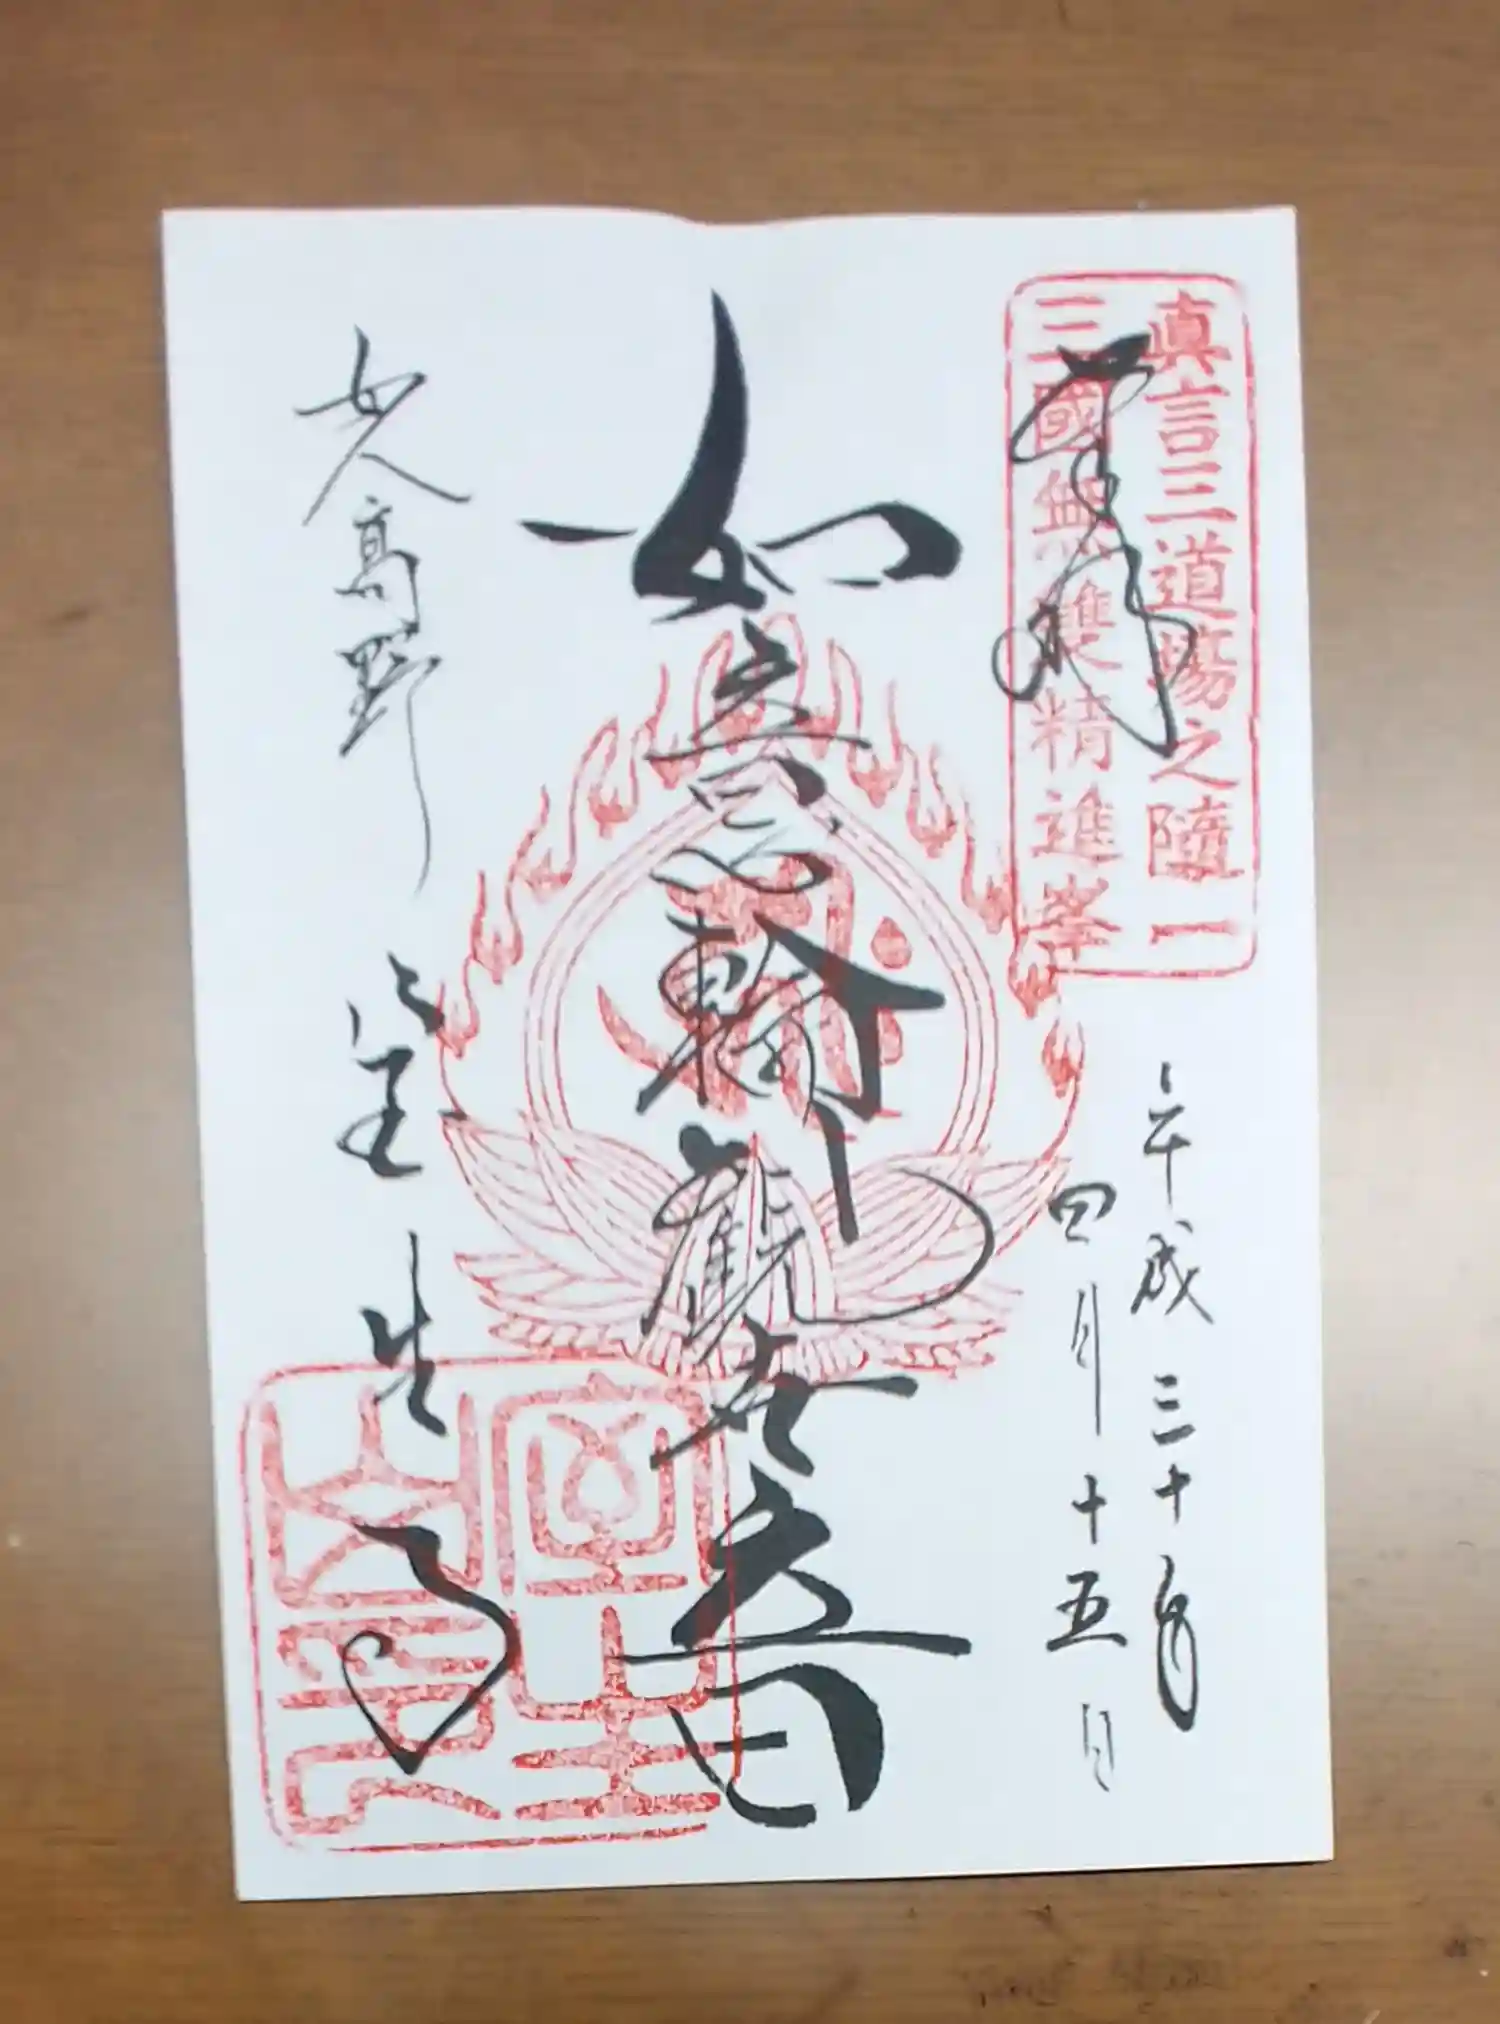 真言三道場之隨一
三國無雙精進峯
奉拝
平成三十年
四月十五日
如意輪観世音
女人高野
室生寺